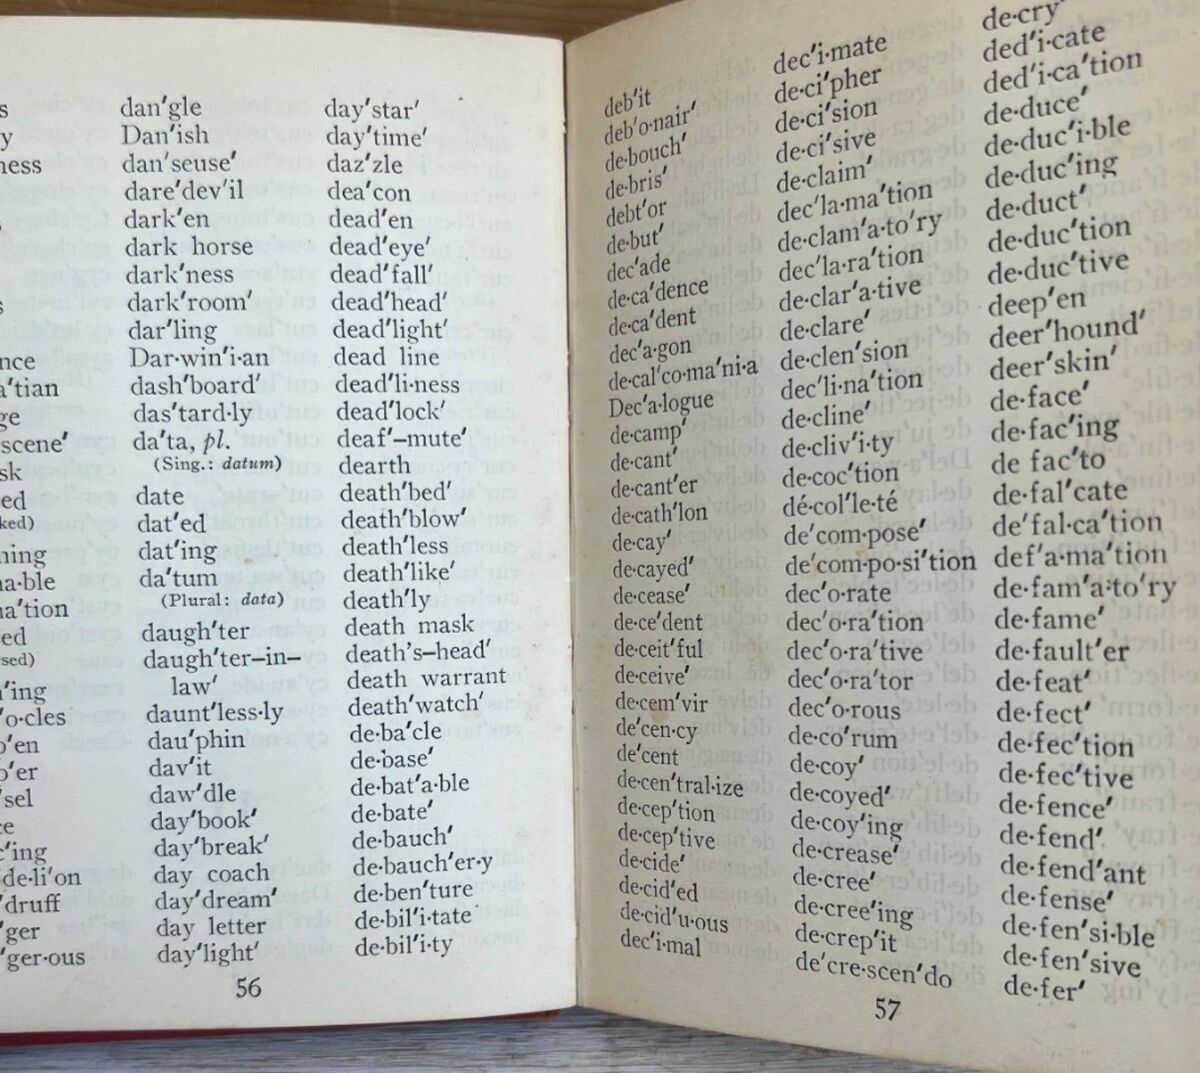 s
y
ness
s
nce
a′tian
ge
scene′
sk
ed
ked)
ning
na·ble
na′tion
ed
rsed)
n′ing
′o·cles
o′en
o′er
′sel
ce
c′ing
′de·li′on
′druff
′ger
′ger·ous
dan′gle
Dan′ish
dan′seuse′
dare′dev′il
dark′en
dark horse
dark′ness
dark′room′
dar′ling
Dar·win′i·an
dash′board′
das′tard·ly
da′ta, pl.
(Sing.: datum)
date
dat′ed
dat′ing
da′tum
(Plural: data)
daugh′ter
daugh′ter–in–
law′
daunt′less·ly
dau′phin
dav′it
daw′dle
day′book′
day′break′
day coach
day′dream′
day letter
day′light′
day′star′
day′time′
daz′zle
dea′con
dead′en
dead′eye′
dead′fall′
dead′head′
dead′light′
dead line
dead′li·ness
dead′lock′
deaf′–mute′
dearth
death′bed′
death′blow′
death′less
death′like′
death′ly
death mask
death′s–head′
death warrant
death′watch′
de·ba′cle
de·base′
de·bat′a·ble
de·bate′
de·bauch′
de·bauch′er·y
de·ben′ture
de·bil′i·tate
de·bil′i·ty
56
deb′it
deb′o·nair′
de·bouch′
de·bris′
debt′or
de·but′
dec′ade
de·ca′dence
de·ca′dent
dec′a·gon
de·cal′co·ma′ni·a
Dec′a·logue
de·camp′
de·cant′
de·cant′er
de·cath′lon
de·cay′
de·cayed′
de·cease′
de·ce′dent
de·ceit′ful
de·ceive′
de·cem′vir
de′cen·cy
de′cent
de·cen′tral·ize
de·cep′tion
de·cep′tive
de·cide′
de·cid′ed
de·cid′u·ous
dec′i·mal
dec′i·mate
de·ci′pher
de·ci′sion
de·ci′sive
de·claim′
dec′la·ma′tion
de·clam′a·to′ry
dec′la·ra′tion
de·clar′a·tive
de·clare′
de·clen′sion
dec′li·na′tion
de·cline′
de·cliv′i·ty
de·coc′tion
dé·col′le·té
de′com·pose′
de′com·po·si′tion
dec′o·rate
dec′o·ra′tion
dec′o·ra′tive
dec′o·ra′tor
dec′o·rous
de·co′rum
de·coy′
de·coyed′
de·coy′ing
de·crease′
de·cree′
de·cree′ing
de·crep′it
de′cre·scen′do
de·cry′
ded′i·cate
ded′i·ca′tion
de·duce′
de·duc′i·ble
de·duc′ing
de·duct′
de·duc′tion
de·duc′tive
deep′en
deer′hound′
deer′skin′
de·face′
de·fac′ing
de fac′to
de·fal′cate
de′fal·ca′tion
def′a·ma′tion
de·fam′a·to′ry
de·fame′
de·fault′er
de·feat′
de·fect′
de·fec′tion
de·fec′tive
de·fence′
de·fend′
de·fend′ant
de·fense′
de·fen′si·ble
de·fen′sive
de·fer′
57